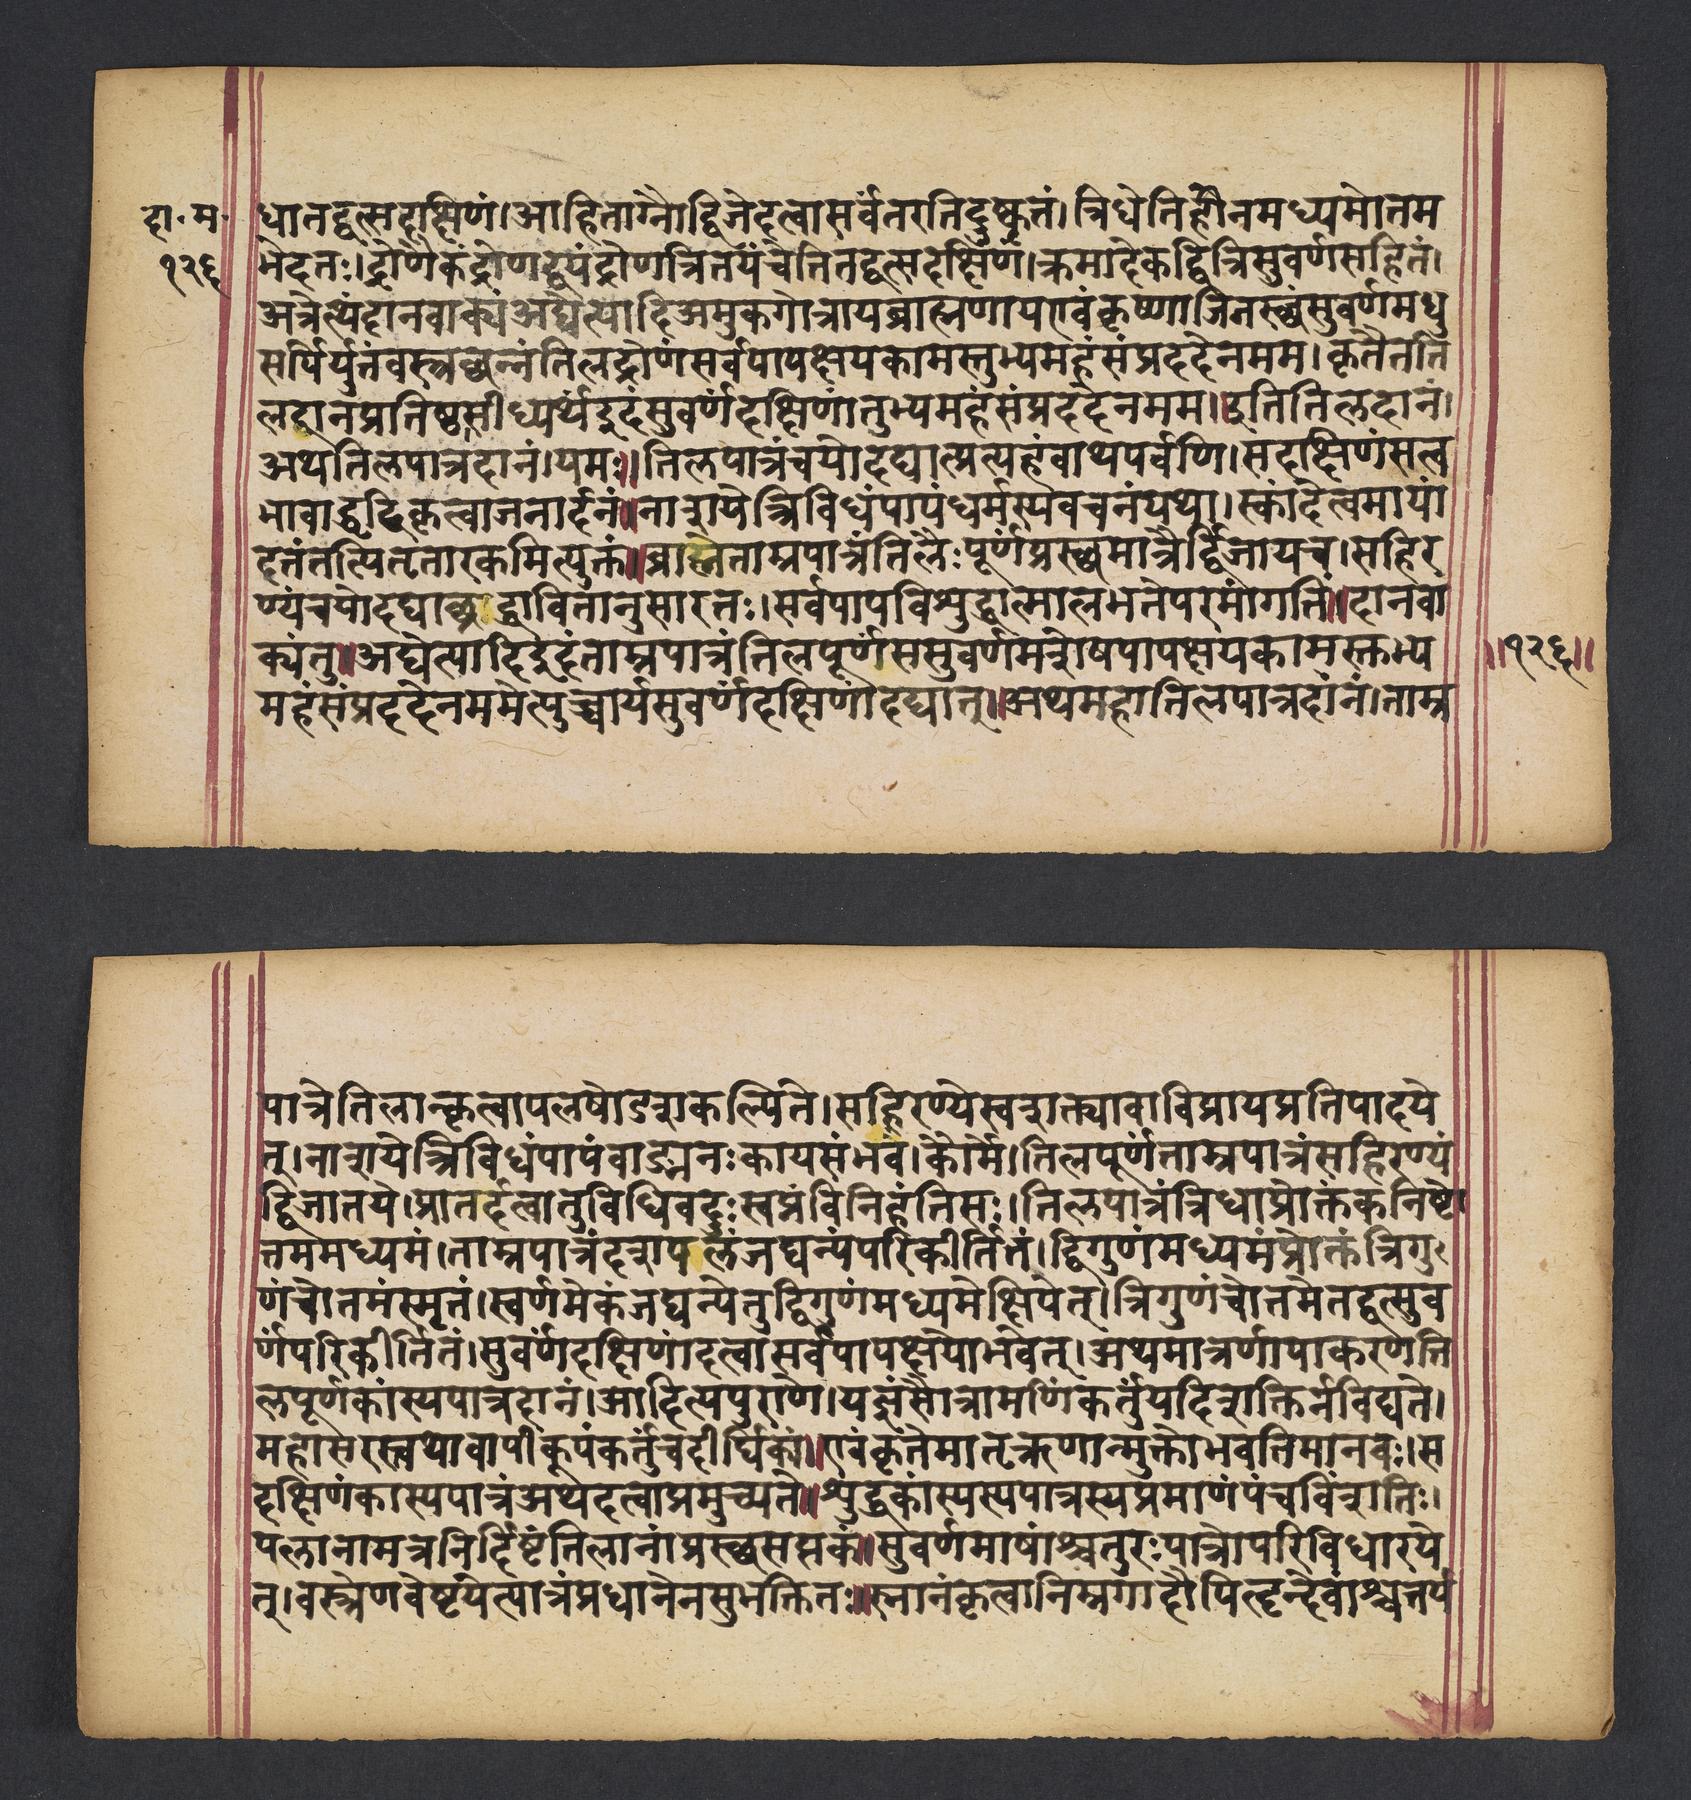 दा॰ म॰
१२६
धानद्वत्सदाक्षिणं।आहिताग्नौद्विजेदत्वासर्वंतरतिदुष्कृतं।त्रिधेतिहीनमध्यमोत्तम
भेदतः।द्रोणैकंद्रोणद्वयंद्रोणत्रितयंचेतितद्वत्सदक्षिणं।क्रमादेकद्वित्रिसुवर्णसहितं।
अत्रेत्थंदानवाक्यंअद्येत्यादिअमुकगोत्रायब्राह्मणायएवंकृष्णाजिनस्छंसुवर्णमधु
सर्पिर्युतंवस्त्रछन्नंतिलद्रोणंसर्वपापक्षयकामस्तुभ्यमहंसंप्रददेनमम।कृतैतत्ति
लद्दानप्रतिष्ठासीध्यर्थंइदंसुवर्णंदक्षिणांतुभ्यमहंसंप्रददेनमम॥इतितिलदानं।
अथतिलपात्रदानं।यमः॥तिलपात्रंचयोदद्यात्प्रत्यहंवाथपर्वणि।सदक्षिणंसत्व
भावाद्धृदिकृत्वाजनार्दनं॥नाशयेत्रिविधंपापंधर्मस्यवचनंयथा।स्कांदेत्वमायां
दत्तंतत्पितृतारकमित्युक्तं॥ब्राह्मेताम्रपात्रंतिलैःपूर्णंप्रस्छमात्रैर्द्विजायच।सहिर
ण्यंचयोदद्याछ्रद्धावित्तानुसारतः।सर्वपापविश्युद्धात्मालभतेपरमांगतिं॥दानवा
क्यंतु॥अद्येत्यादिइदंताम्रपात्रंतिलपूर्णंससुवर्णमशेषपापक्षयकामस्तुभ्य
॥१२६॥
महंसंप्रददेनममेत्युच्चार्यसुवर्णंदक्षिणांदद्यात्॥अथमहातिलपात्रदानं।ताम्र
पात्रेतिलान्कृत्वापलषोडशकल्पिते।सहिरण्येस्वशक्त्यावाविप्रायप्रतिपादये
त्।नाशयेत्रिविधंपापंवाङ्मनःकायसंभवं।कौर्मे।तिलपूर्णंताम्रपात्रंसहिरण्यं
द्विजातये।प्रातर्दत्वातुविधिवदुःस्वप्नंविनिहंतिसः।तिलपात्रंत्रिधाप्रोक्तंकनिष्टो
त्तममध्यमं।ताम्रपात्रंदशपलंजघन्यंपरिकीर्तितं।द्विगुणंमध्यमंप्रोक्तंत्रिगु
णंचोत्तमंस्मृतं।स्वर्णमेकंजघन्येतुद्विगुणंमध्यमेक्षिपेत्।त्रिगुणंचोत्तमेतद्वत्सुव
र्णंपरिकीर्तितं।सुवर्णंदक्षिणांदत्वासर्वपापक्षयोभवेत्।अथमात्रर्णापाकरणेति
लपूर्णकांस्यपात्रदानं।आदित्यपुराणे।यज्ञंसौत्रामणिंकर्तुंयदिशक्तिर्नविद्यते।
महासरस्तथावापींकूपंकर्तुंचदीर्घिकां॥एवंकृतेमातृऋणान्मुक्तोभवतिमानवः।स
दक्षिणंकांस्यपात्रंअथदत्वाप्रमुच्यते॥श्युद्धकांस्यस्यपात्रस्यप्रमाणंपंचविंशतिः।
पलानामत्रनिर्दिष्टंतिलानांप्रस्छसप्तकं॥सुवर्णमाषांश्चतुरःपात्रोपरिविधारये
त्।वस्त्रेणवेष्टयेत्पात्रंप्रधानेनसुभक्तितः॥स्नानंकृत्वानिम्नगादौपितॄन्देवांश्चतर्प